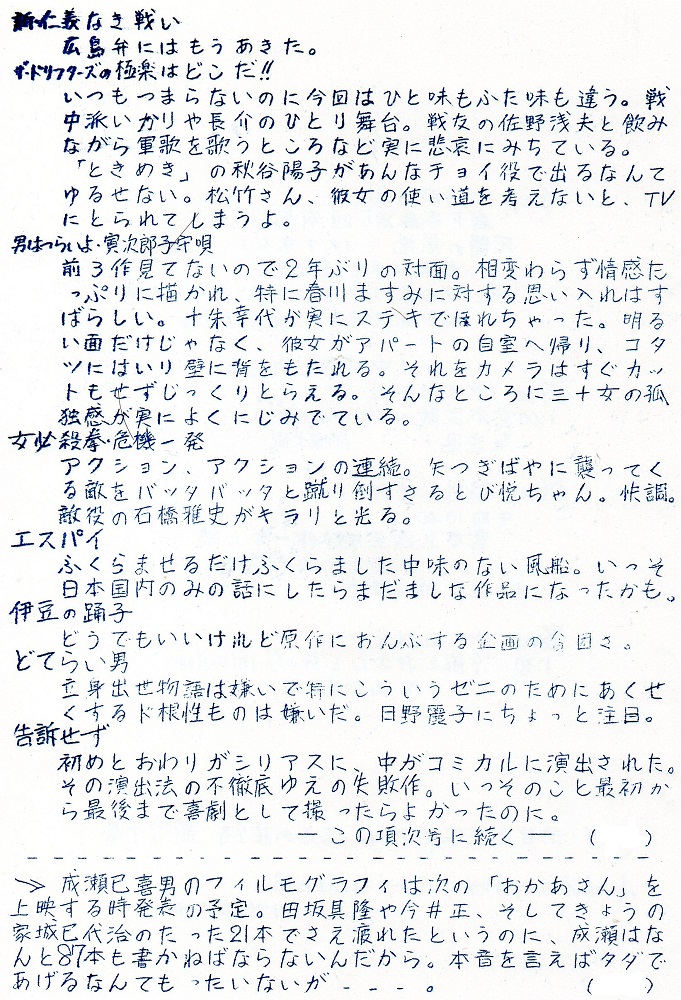 新仁義なき戦い
広島弁にはもうあきた。
ザ・ドリフターズの極楽はどこだ!!
いつもつまらないのに今回はひと味もふた味も違う。戦
中派いかりや長介のひとり舞台。戦友の佐野浅夫と飲み
ながら軍歌を歌うところなど実に悲哀にみちている。
「ときめき」の秋谷陽子があんなチョイ役で出るなんて
ゆるせない。松竹さん、彼女の使い道を考えないと、TV
にとられてしまうよ。
男はつらいよ・寅次郎子守唄
前3作見てないので2年ぶりの対面。相変わらず情感た
っぷりに描かれ、特に春川ますみに対する思い入れはす
ばらしい。十朱幸代が実にステキでほれちゃった。明る
い面だけじゃなく、彼女がアパートの自室へ帰り、コタ
ツにはいり壁に背をもたれる。それをカメラはすぐカッ
トもせずじっくりとらえる。そんなところに三十女の孤
独感が実によくにじみでている。
女必殺拳・危機一発
アクション、アクションの連続。矢つぎばやに襲ってく
る敵をバッタバッタと蹴り倒すさるとび悦ちゃん。快調。
敵役の石橋雅史がキラリと光る。
エスパイ
ふくらませるだけふくらました中味のない風船。いっそ
日本国内のみの話にしたらまだましな作品になったかも。
伊豆の踊子
どうでもいいけれど原作におんぶする企画の貧困さ。
どてらい男
立身出世物語は嫌いで特にこういうゼニのためにあくせ
くするド根性ものは嫌いだ。日野麗子にちょっと注目。
告訴せず
初めとおわりがシリアスに、中がコミカルに演出された。
その演出法の不徹底ゆえの失敗作。いっそのこと最初か
ら最後まで喜劇として撮ったらよかったのに。
―この項次号に続く― ( )
成瀬巳喜男のフィルモグラフィは次の「おかあさん」を
上映する時発表の予定。田坂具隆や今井正、そしてきょうの
家城巳代治のたった21本でさえ疲れたというのに、成瀬はな
んと87本も書かねばならないんだから。本音を言えばタダで
あげるなんてもったいないが----。 ( )